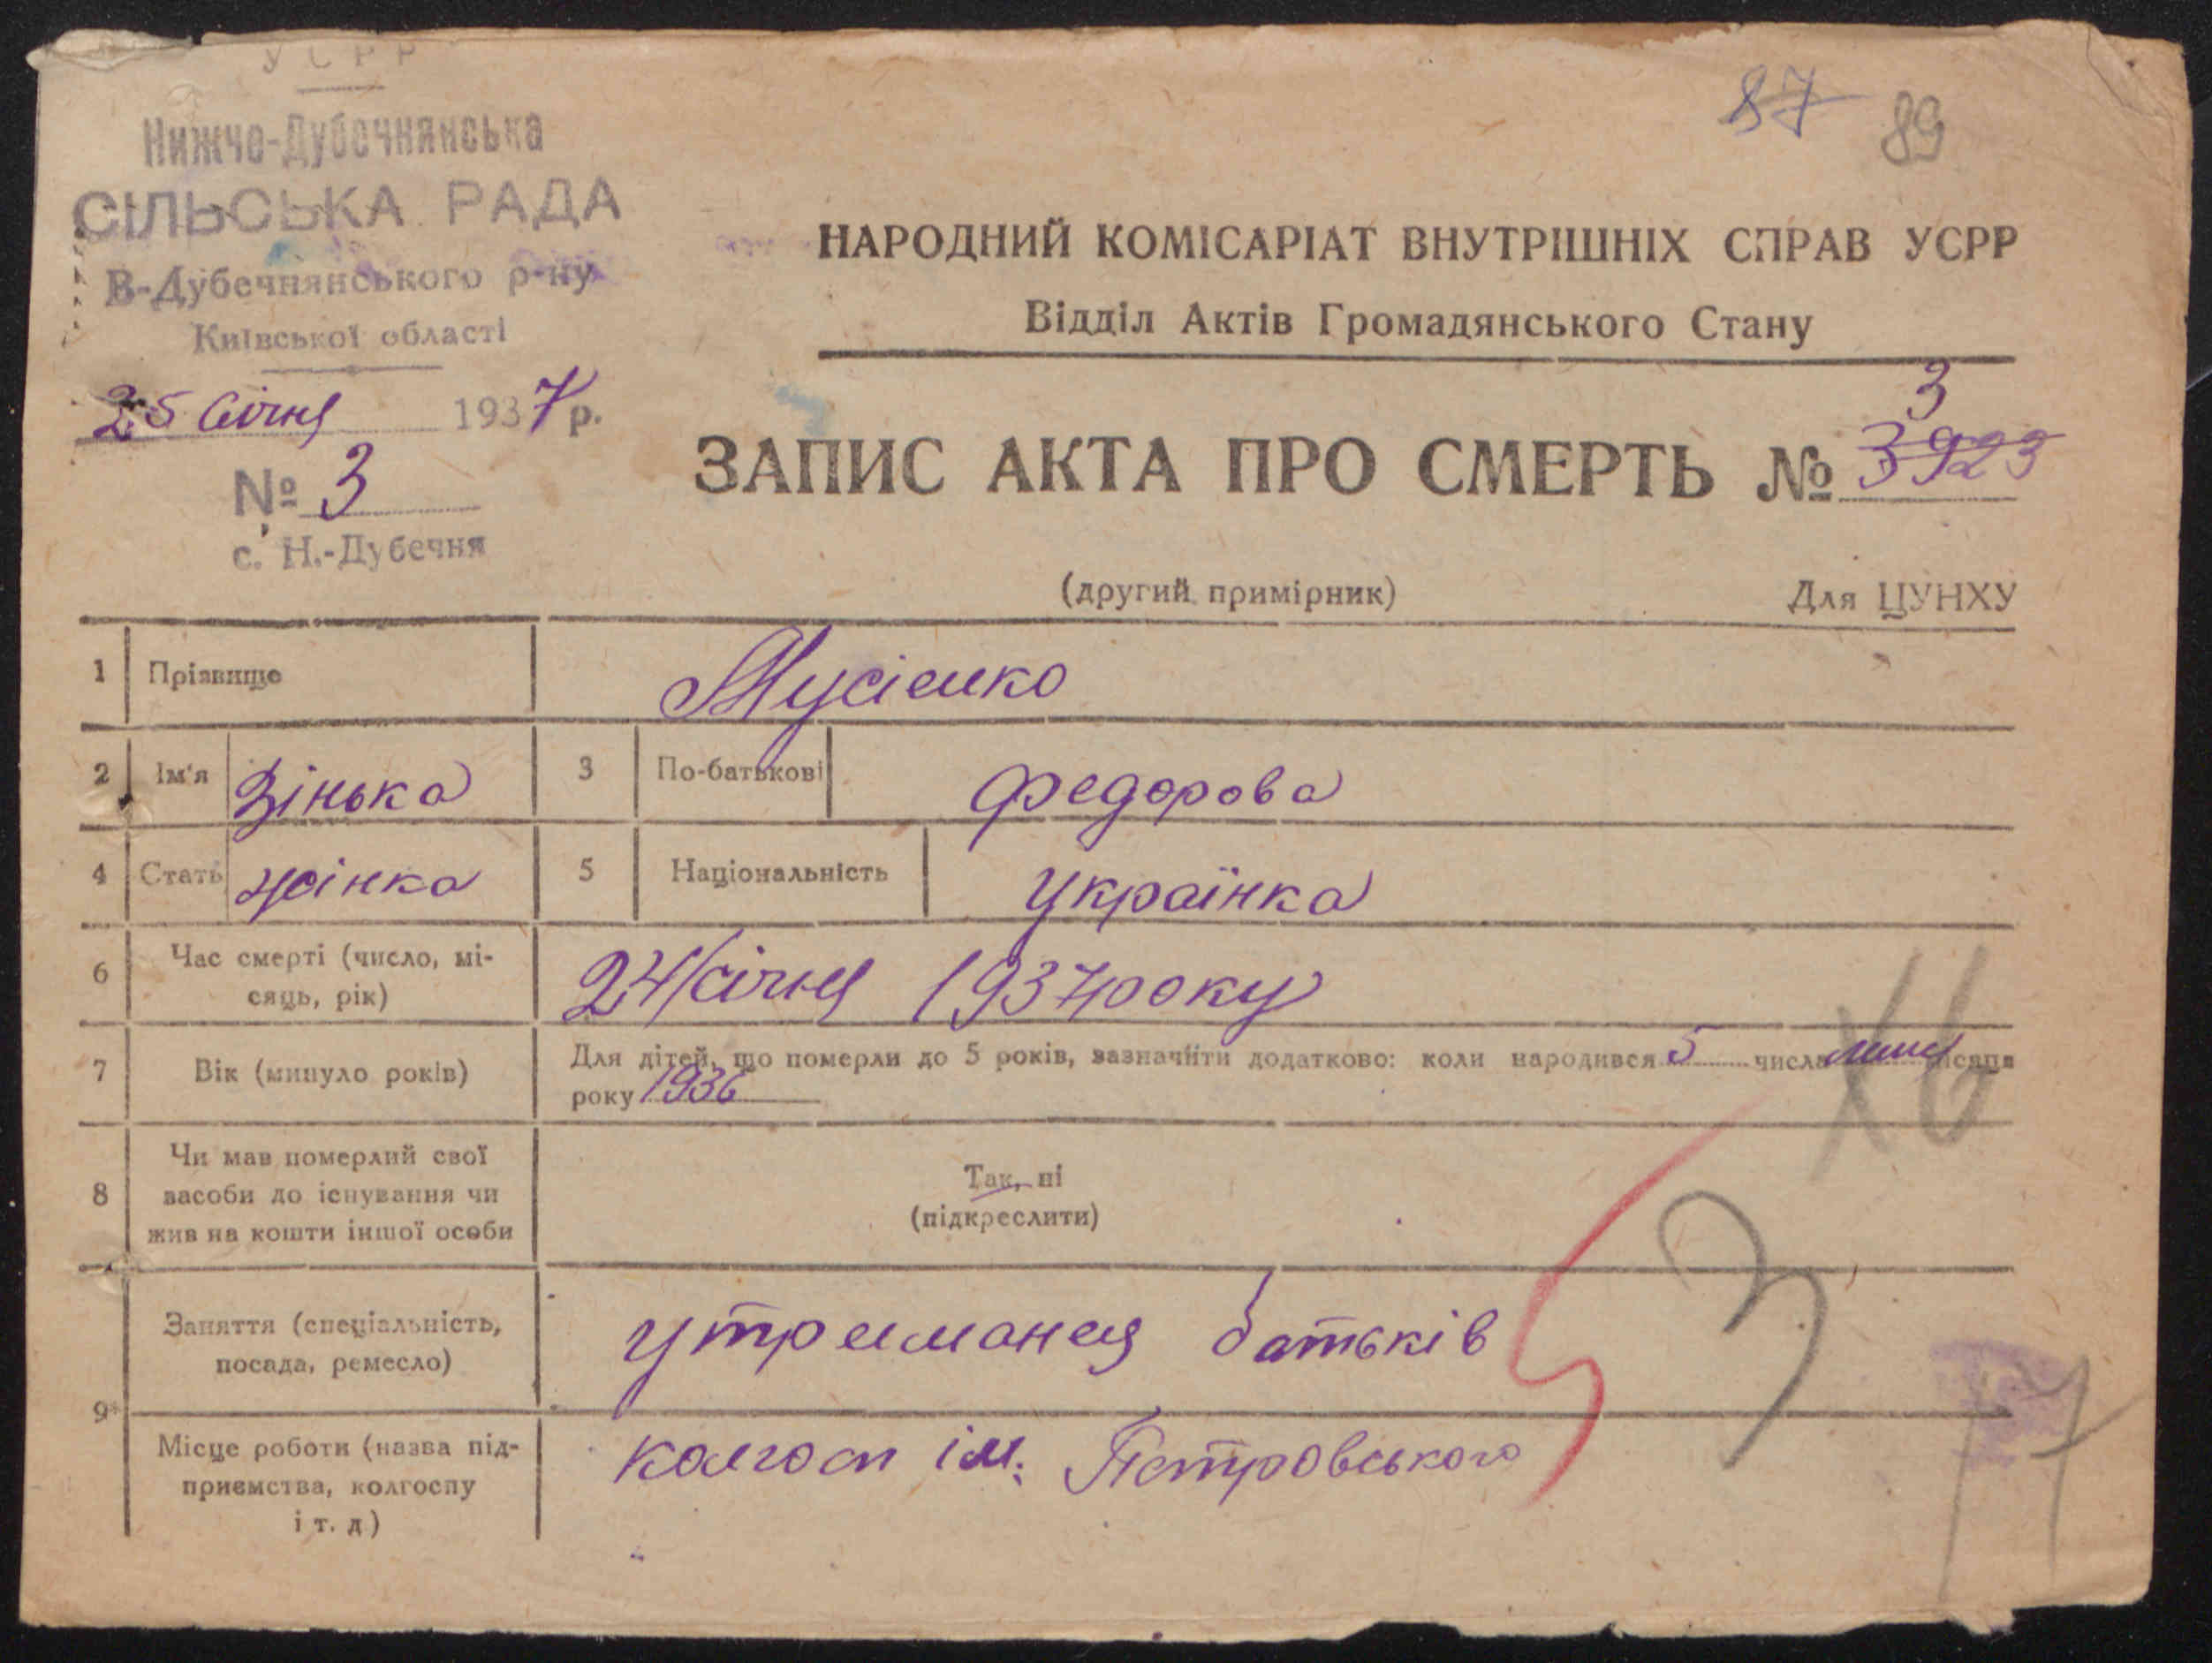 УСРР
87 89
Нижче-Дубечнянська
СІЛЬСЬКА РАДА
В-Дубечнянського р-ну
Київської області
25 Січня 1937 р.
№ 3
с. Н.-Дубечня
НАРОДНИЙ КОМІСАРІАТ ВНУТРІШНІХ СПРАВ УСРР
Відділ Актів Громадянського Стану
3
ЗАПИС АКТА ПРО СМЕРТЬ № 3923
(другий примірник) Для ЦУНХУ
1 Прізвище Мусієнко
2 Ім'я Зінька 3 По-батькові Федорова
4 Стать жінка 5 Національність Українка
6 Час смерті (число, мі-
сяць, рік) 24/січня 1937 року
7 Вік (минуло років) Для дітей, що померли до 5 років, зазначити додатково: коли народився 5 числа місяця
року 1936
Х6
8 Чи мав померлий свої
засоби до існування чи
жив на кошти іншої особи
Так, ні
(підкреслити)
9 Заняття (спеціальність,
посада, ремесло) утриманця батьків
3
Місце роботи (назва під-
приємства, колгоспу
і т. д) колгосп ім. Петровського